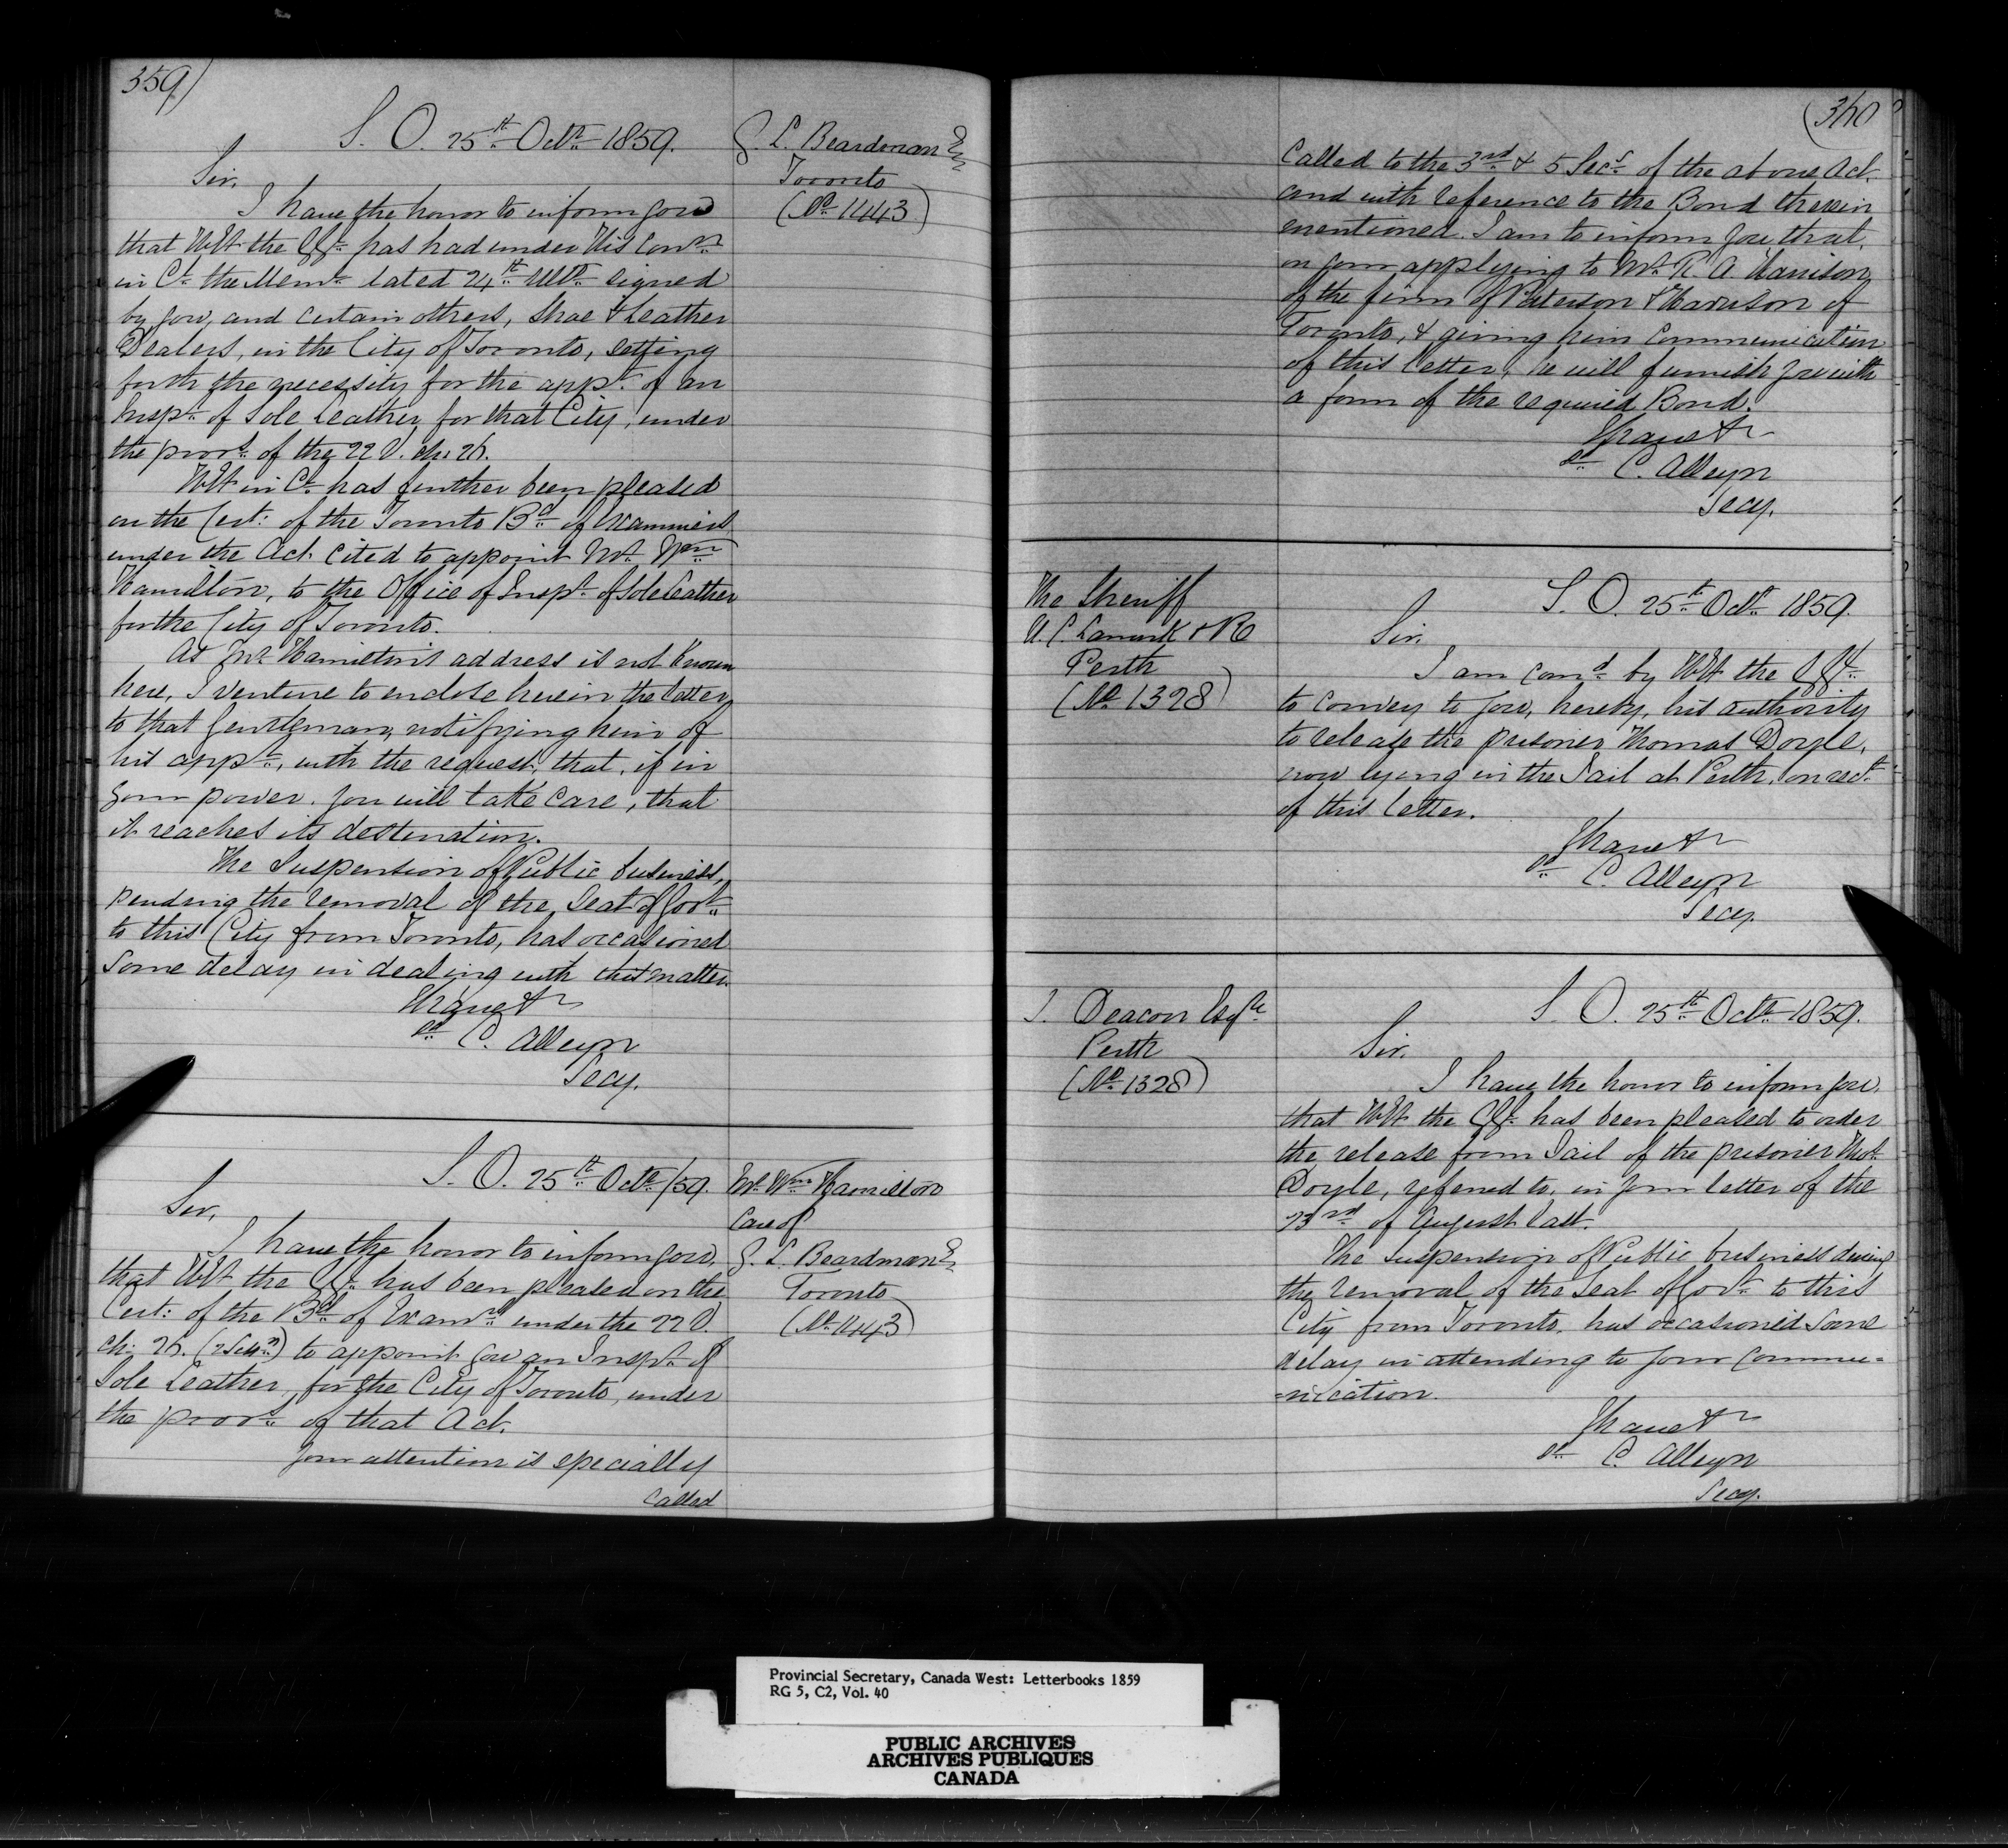 359)
S. O. 25th Octr 1859.
G. L. Beardman Esq
Toronto
(No 1443)
Sir,
I have the honor to inform you
that HE the GG. has had under His Conn
in Ct. the Meml dated 24th Ulto signed
by you, and certain others, Shoe & Leather
Dealers, in the City of Toronto, setting
forth the necessity for the appt. of an
Inspr. of Sole Leather for that City, under
the provs. of the 22 V. ch. 26.
HE in Ct. has further been pleased
on the Cert: of the Toronto Bd. of Examiners
under the Act cited to appoint Mr. Wm
Hamilton, to the Office of Inspr. of Sole Leather
for the City of Toronto.
As Mr. Hamilton's address is not known
here, I venture to enclose herein the letter
to that Gentleman, notifying him of
his appt., with the request, that, if in
your power, you will take care, that
it reaches its destination.
The Suspension of Public business,
pending the removal of the Seat of Govt.
to this City from Toronto, has occasioned
some delay in dealing with this matter.
I have &c
Sd. C. Alleyn
Secy.
S. O. 25th Octr/59.
Mr. Wm Hamilton
Care of
G. L. Beardman Esq
Toronto
(No. 1443)
Sir,
I have the honor to inform you,
that HE the GG. has been pleased on the
Cert: of the Bd. of Examrs under the 22 V.
ch: 26. to appoint you an Inspr. of
Sole Leather, for the City of Toronto, under
the provs. of that Act.
Your attention is specially
called
(360
called to the 3rd & 5 Secs. of the above Act.
and with reference to the Bond therein
mentioned. I am to inform you that,
on your applying to Mr. R. A. Harrison,
of the firm of Paterson & Harrison of
Toronto, & giving him communication
of this letter, he will furnish you with
a form of the required Bond.
I have &c
Sd. C. Alleyn
Secy.
The Sheriff
U. C. Lanark & R
Perth
(No. 1328)
S. O. 25th Octr 1859.
Sir,
I am comd. by HE the GG.
to convey to you, hereby, his authority
to release the prisoner Thomas Doyle,
now lying in the Jail at Perth, on rect.
of this letter.
I have &c
Sd. C. Alleyn
Secy.
J. Deacon Esqre
Perth
(No. 1328)
S. O. 25th Octr 1859.
Sir,
I have the honor to inform you,
that HE the GG. has been pleased to order
the release from Jail of the prisoner Thos.
Doyle, referred to, in your letter of the
23rd of August last.
The Suspension of Public business during
the removal of the Seat of Govt. to this
City from Toronto, has occasioned some
delay in attending to your commu=
=nication.
I have &c
Sd. C. Alleyn
Secy.
Provincial Secretary, Canada West: Letterbooks 1859
RG 5, C2, Vol. 40
PUBLIC ARCHIVES
ARCHIVES PUBLIQUES
CANADA